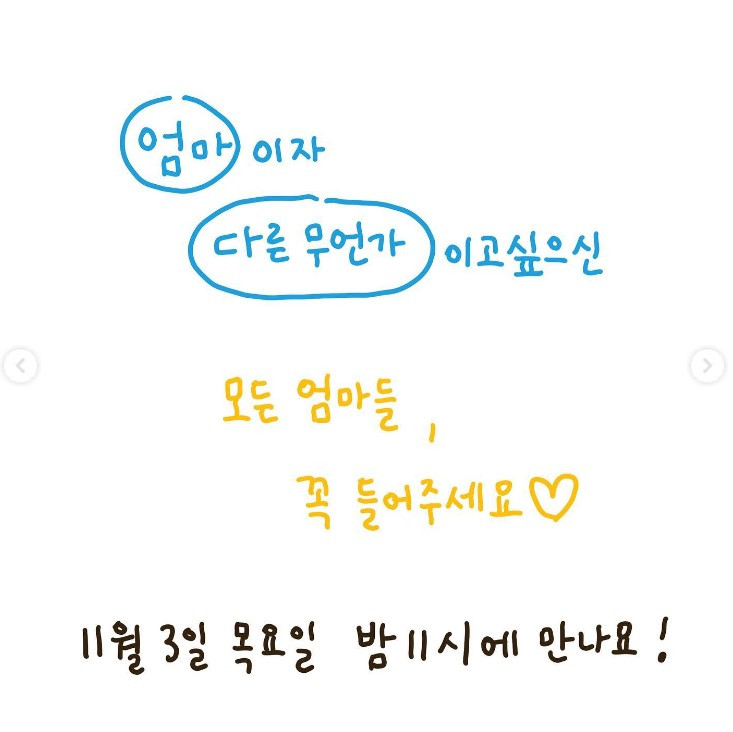 엄마이자
다른 무언가이고싶으신
모든 엄마들,
꼭 들어주세요♡
11월 3일 목요일 밤 11시에 만나요!